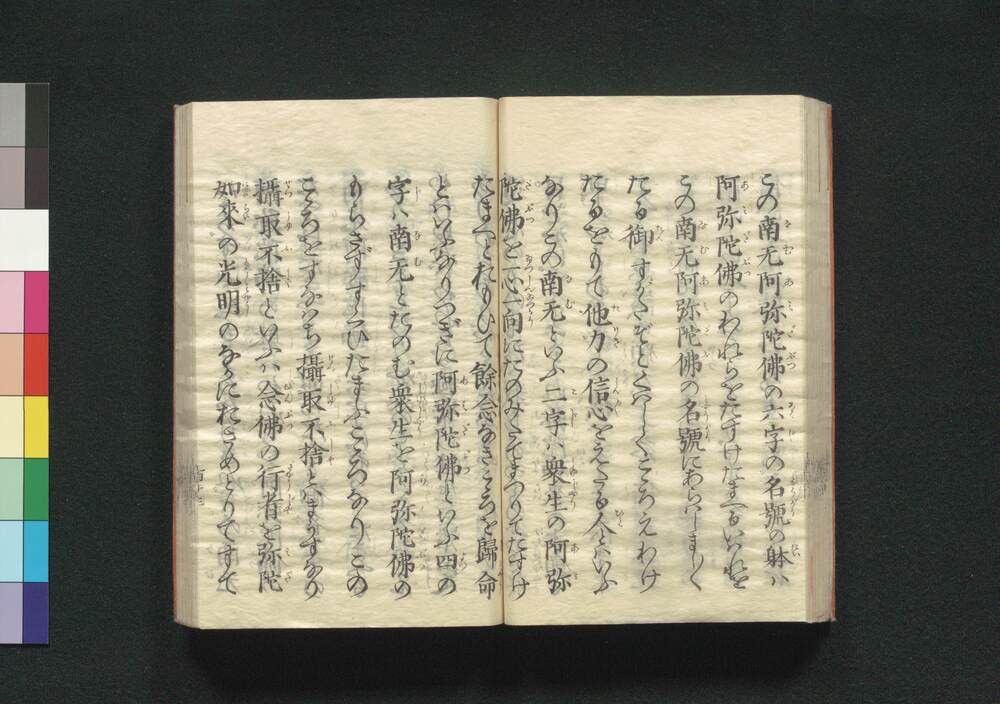 この南无阿弥陀佛の六字の名號の躰ハ
阿弥陀佛のわれらをたすけたまへるいはれを
この南无阿弥陀佛の名號にあらハしましく
たる御すがたぞとくハしくこころえわけ
たるをもて他力の信心をえたる人とハいふ
なりこの南无といふ二字ハ衆生の阿弥
陀佛を一心一向にたのみたてまつりてたすけ
たまへとおもひて餘念なきこころを歸命
とハいふなりつぎに阿弥陀佛といふ四の
字ハ南无とたのむ衆生を阿弥陀佛の
もらさずすくひたまふこころなりこの
こころをすなハち攝取不捨とハまうすなり
攝取不捨といふハ念佛の行者を弥陀
如來の光明のなかにおさめとりてすて